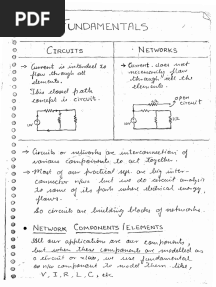 PDF
FUNDAMENTALS
CIRCUITS
NETWORKS
→ Current is intended to
flow through all
elements.
This closed path
concept is circuit.
→ Current does not
necessarily flow
through all the
elements.
open
circuit
→ Circuits or networks are interconnection of
various components to act together.
→ Most of our practical sys are big inter-
connection but we do circuit analysis
to some of its parts where electrical energy
flows.
So circuits are building blocks of networks.
• NETWORK COMPONENTS/ELEMENTS
All our application are our components,
but when these components are modelled as
a circuit or n/w, we use fundamental
n/w component to model them like,
V, I, R, L, C, etc